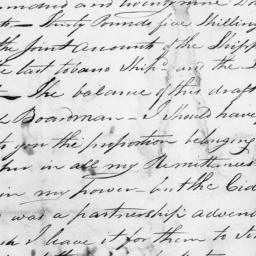 and twenty nine
Thirty Pounds five Shilling
the joint accounts of the Shipp
the last tobaco Ship.d and the
The balance of this draft
Boardman - I should have
to you the proportion belonging
in all my Remittances
in my power but the
was a partnership adven
I leave it for them to